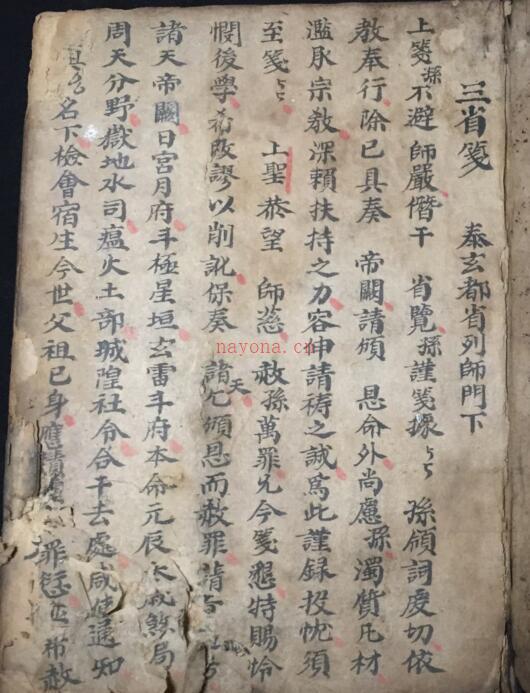 三省笺 泰玄都省列師門下
上箋孫不避師嚴僭干 省覽孫謹箋據 孫領詞虔切依
教奉行除已具奏 帝闕請頒 恩命外尚慮孫濁質凡材
濫叨宗教深賴扶持之力容伸請禱之誠為此謹録投忱須
至箋 上聖恭望 師慈 赦孫萬罪允今箋懇特賜怜
憫後學 改謬以削訛保奏 諸天頒恩而赦罪請
諸天帝闕日宮月府斗極星垣玄雷斗府本命元辰太歲煞局
周天分野嶽地水司瘟火土部城隍社令合干去處咸使通知
名下檢會宿生今世父祖己身 罪愆 赦
nayona.cn